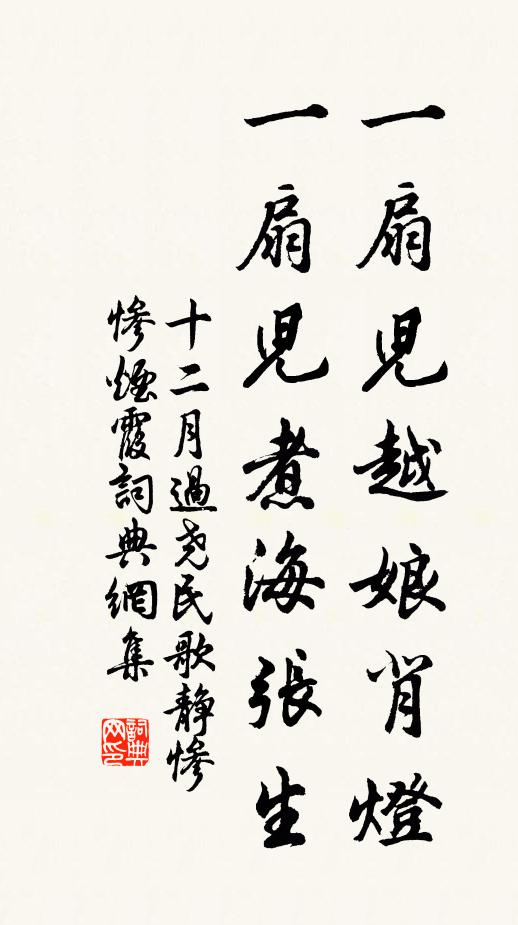 一扇兒越娘肖燈
一扇兒煮海張生
十二月過尧民歌静慘
慘煙霞詞典網集
詞典
网印